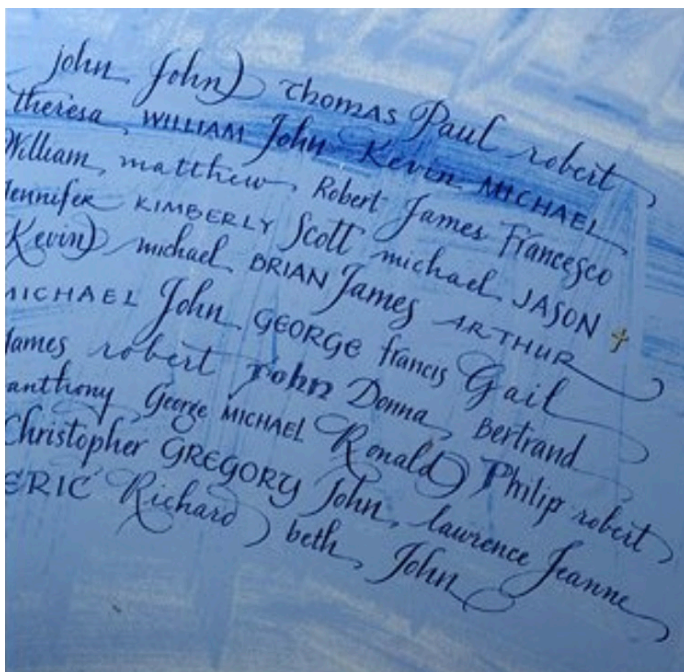 john John Thomas Paul robert
theresa WILLIAM John Kevin MICHAEL
William matthew Robert James Francesco
Jennifer KIMBERLY Scott michael JASON
Kevin michael BRIAN James ARTHUR
MICHAEL John GEORGE francis Gail
James robert John Donna Bertrand
anthony George MICHAEL Ronald Philip robert
Christopher GREGORY John lawrence Jeanne
ERIC Richard beth John